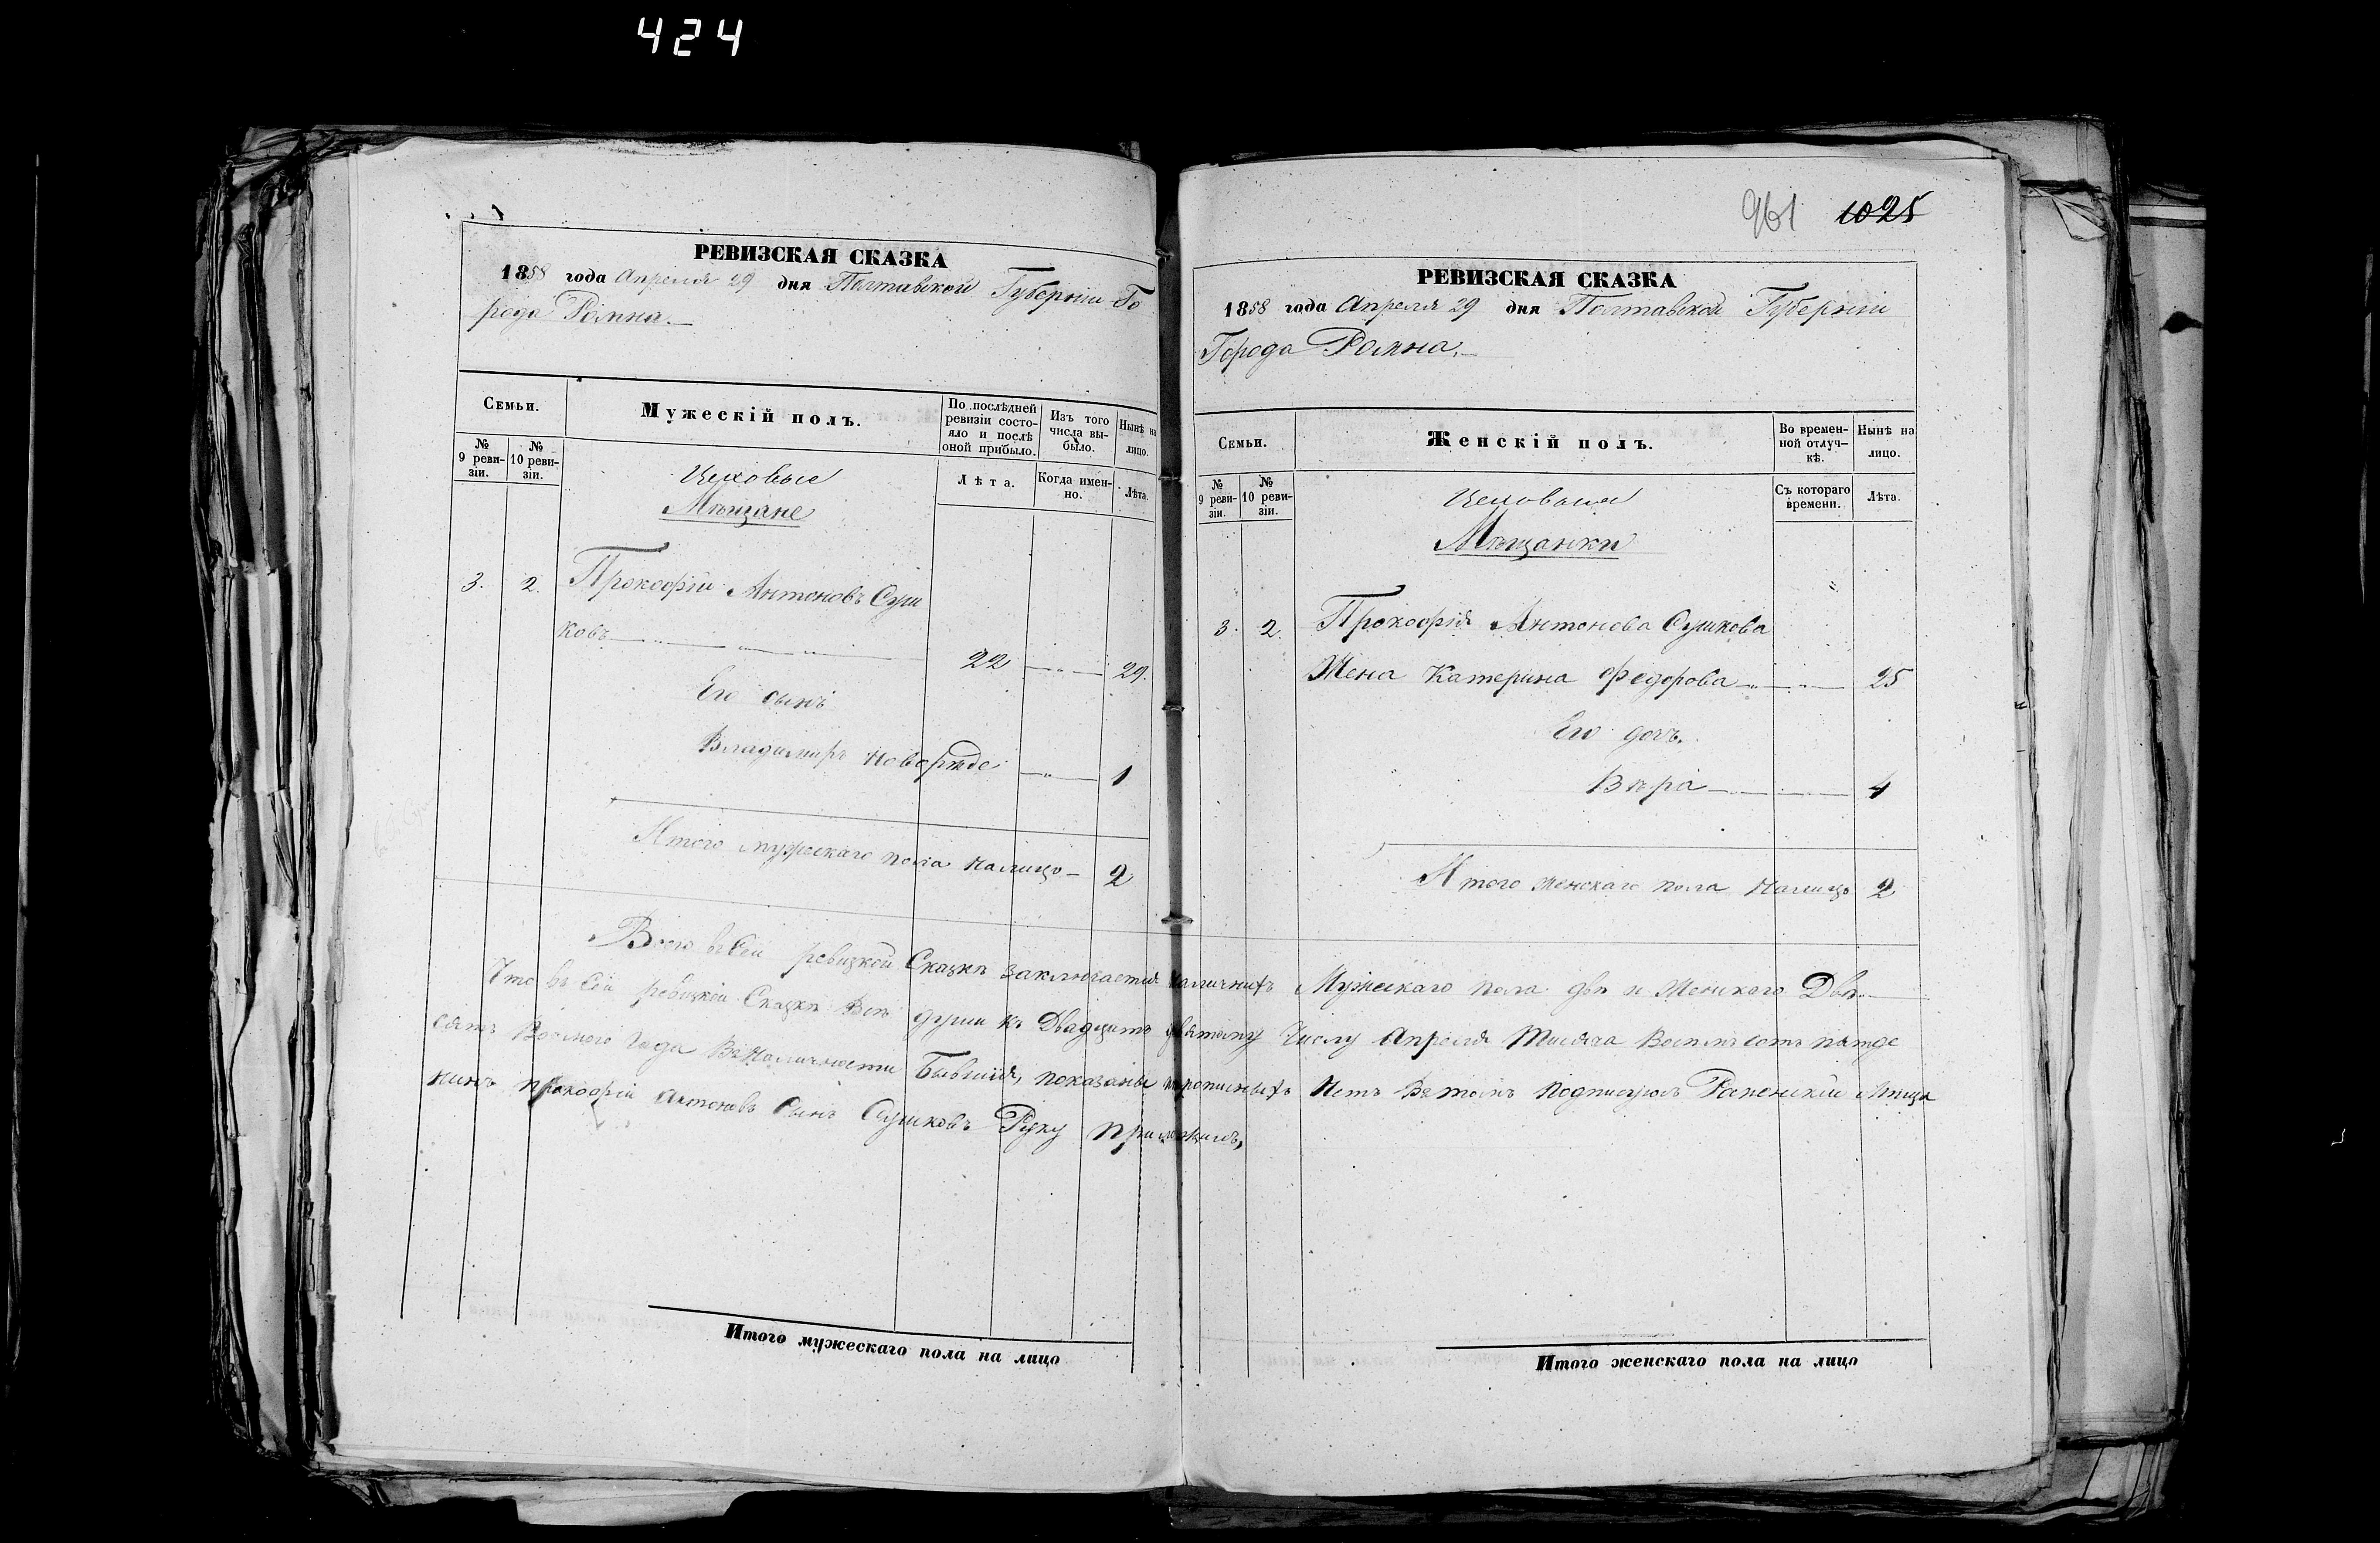 424
РЕВИЗСКАЯ СКАЗКА
1858 года Апреля 29 дня Полтавской Губерніи Го
рода Ромна.
Семьи.
Мужескій полъ.
По послѣдней ревизіи состояло и послѣ оной прибыло.
Изъ того числа выбыло.
Нынѣ на лицо.
№ 9 ревизіи.
№ 10 ревизіи.
Лѣта.
Когда именно.
Лѣта.
Цеховые
Мѣщане
3. 2. Прокофій Антоновъ Суш
ковъ 22 29.
Его сынъ
Владимиръ Новоржде 1
Итого мужескаго пола Налицо 2
961 1025
РЕВИЗСКАЯ СКАЗКА
1858 года Апреля 29 дня Полтавской Губерніи
Города Ромна.
Семьи.
Женскій полъ.
Во временной отлучкѣ.
Нынѣ на лицо.
№ 9 ревизіи.
№ 10 ревизіи.
Съ котораго времени.
Лѣта.
Цеховыя
Мѣщанки
3. 2. Прокофія Антонова Сушкова
Жена Катерина Федорова 25
Его дочь.
Вѣра 4
Итого женскаго пола Налицо 2
Всего въ Сей ревизкой Сказкѣ заключается наличныхъ Мужескаго пола двѣ и Женскаго Двѣ.
Что въ Сей ревизкой Сказкѣ Всѣ души къ Двадцать девятому Числу Апреля Тисяча Восемъсотъ пятде
сятъ Восмого Года Вналичности Бывшия, показаны прописныхъ Нетъ Вътомъ Подписуюсъ Роменский Мѣща
нинъ Прокофій Антоновъ Сынъ Сушковъ Руку приложилъ,
Итого мужескаго пола на лицо
Итого женскаго пола на лицо